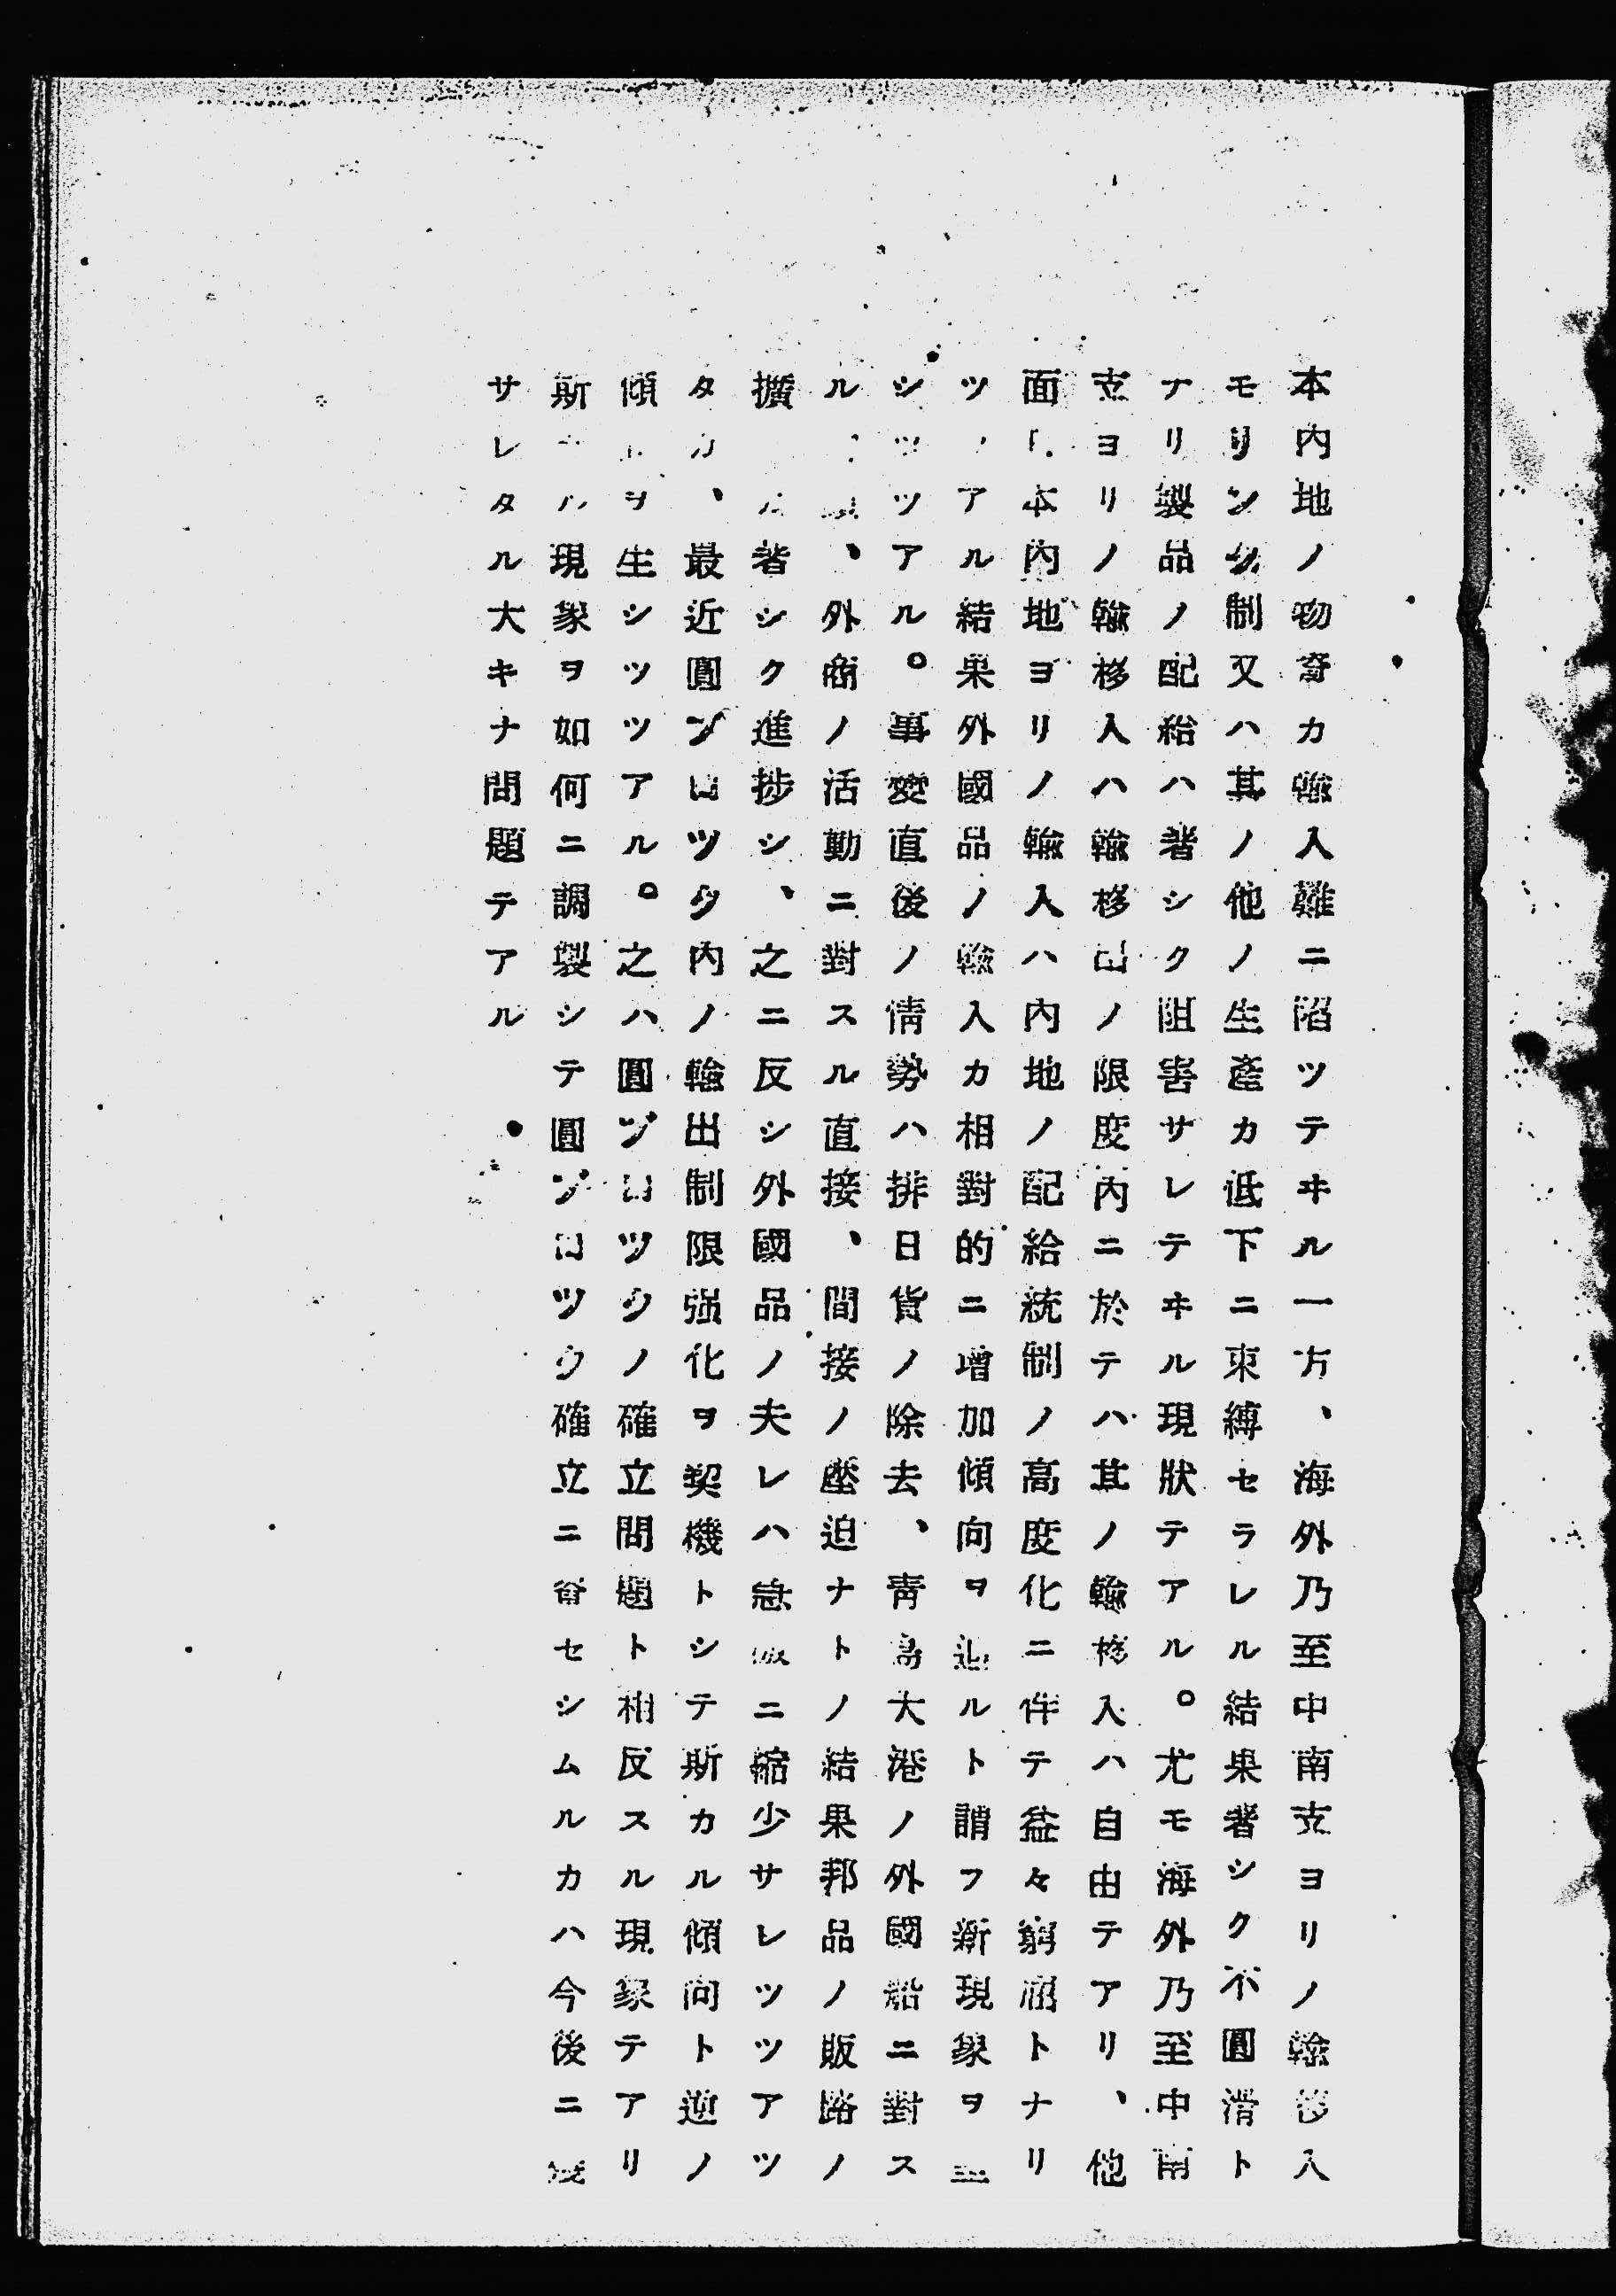 本内地ノ物資カ輸入難ニ陷ツテヰル一方、海外乃至中南支ヨリノ輸移入
モリンク制又ハ其ノ他ノ生産カ低下ニ束縛セラレル結果著シク不圓滑ト
ナリ製品ノ配給ハ著シク阻害サレテヰル現狀テアル。尤モ海外乃至中南
支ヨリノ輸移入ハ輸移出ノ限度内ニ於テハ其ノ輸移入ハ自由テアリ、他
面 本内地ヨリノ輸入ハ内地ノ配給統制ノ高度化ニ伴テ益々窮屈トナリ
ツヽアル結果外國品ノ輸入カ相對的ニ增加傾向ヲ辿ルト謂フ新現象ヲ
シツツアル。事變直後ノ情勢ハ排日貨ノ除去、靑島大港ノ外國船ニ對ス
ル 、外商ノ活動ニ對スル直接、間接ノ壓迫ナトノ結果邦品ノ販路ノ
擴 著シク進捗シ、之ニ反シ外國品ノ夫レハ急激ニ縮少サレツツアツ
タカ、最近圓ブロツク内ノ輸出制限强化ヲ契機トシテ斯カル傾向ト逆ノ
傾 ヲ生シツツアル。之ハ圓ブロツクノ確立問題ト相反スル現象テアリ
斯カル現象ヲ如何ニ調製シテ圓ブロツク確立ニ資セシムルカハ今後ニ殘
サレタル大キナ問題テアル